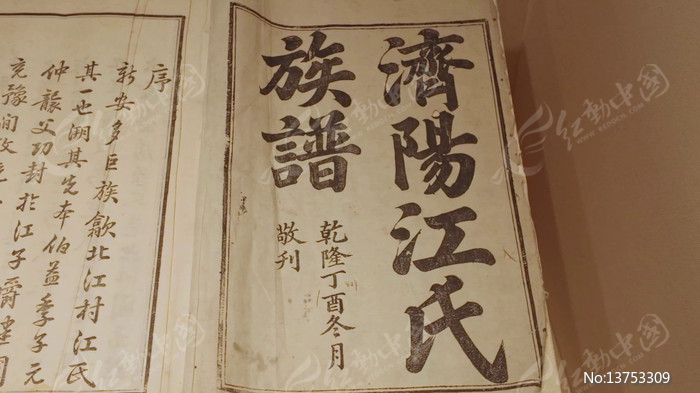 濟陽江氏
族譜
乾隆丁酉冬月
敬刊
序
新安多巨族歙北江村江氏
其一也溯其先本伯益季子元
仲
父功封於江子
克豫間改
红动中国
No:13753309